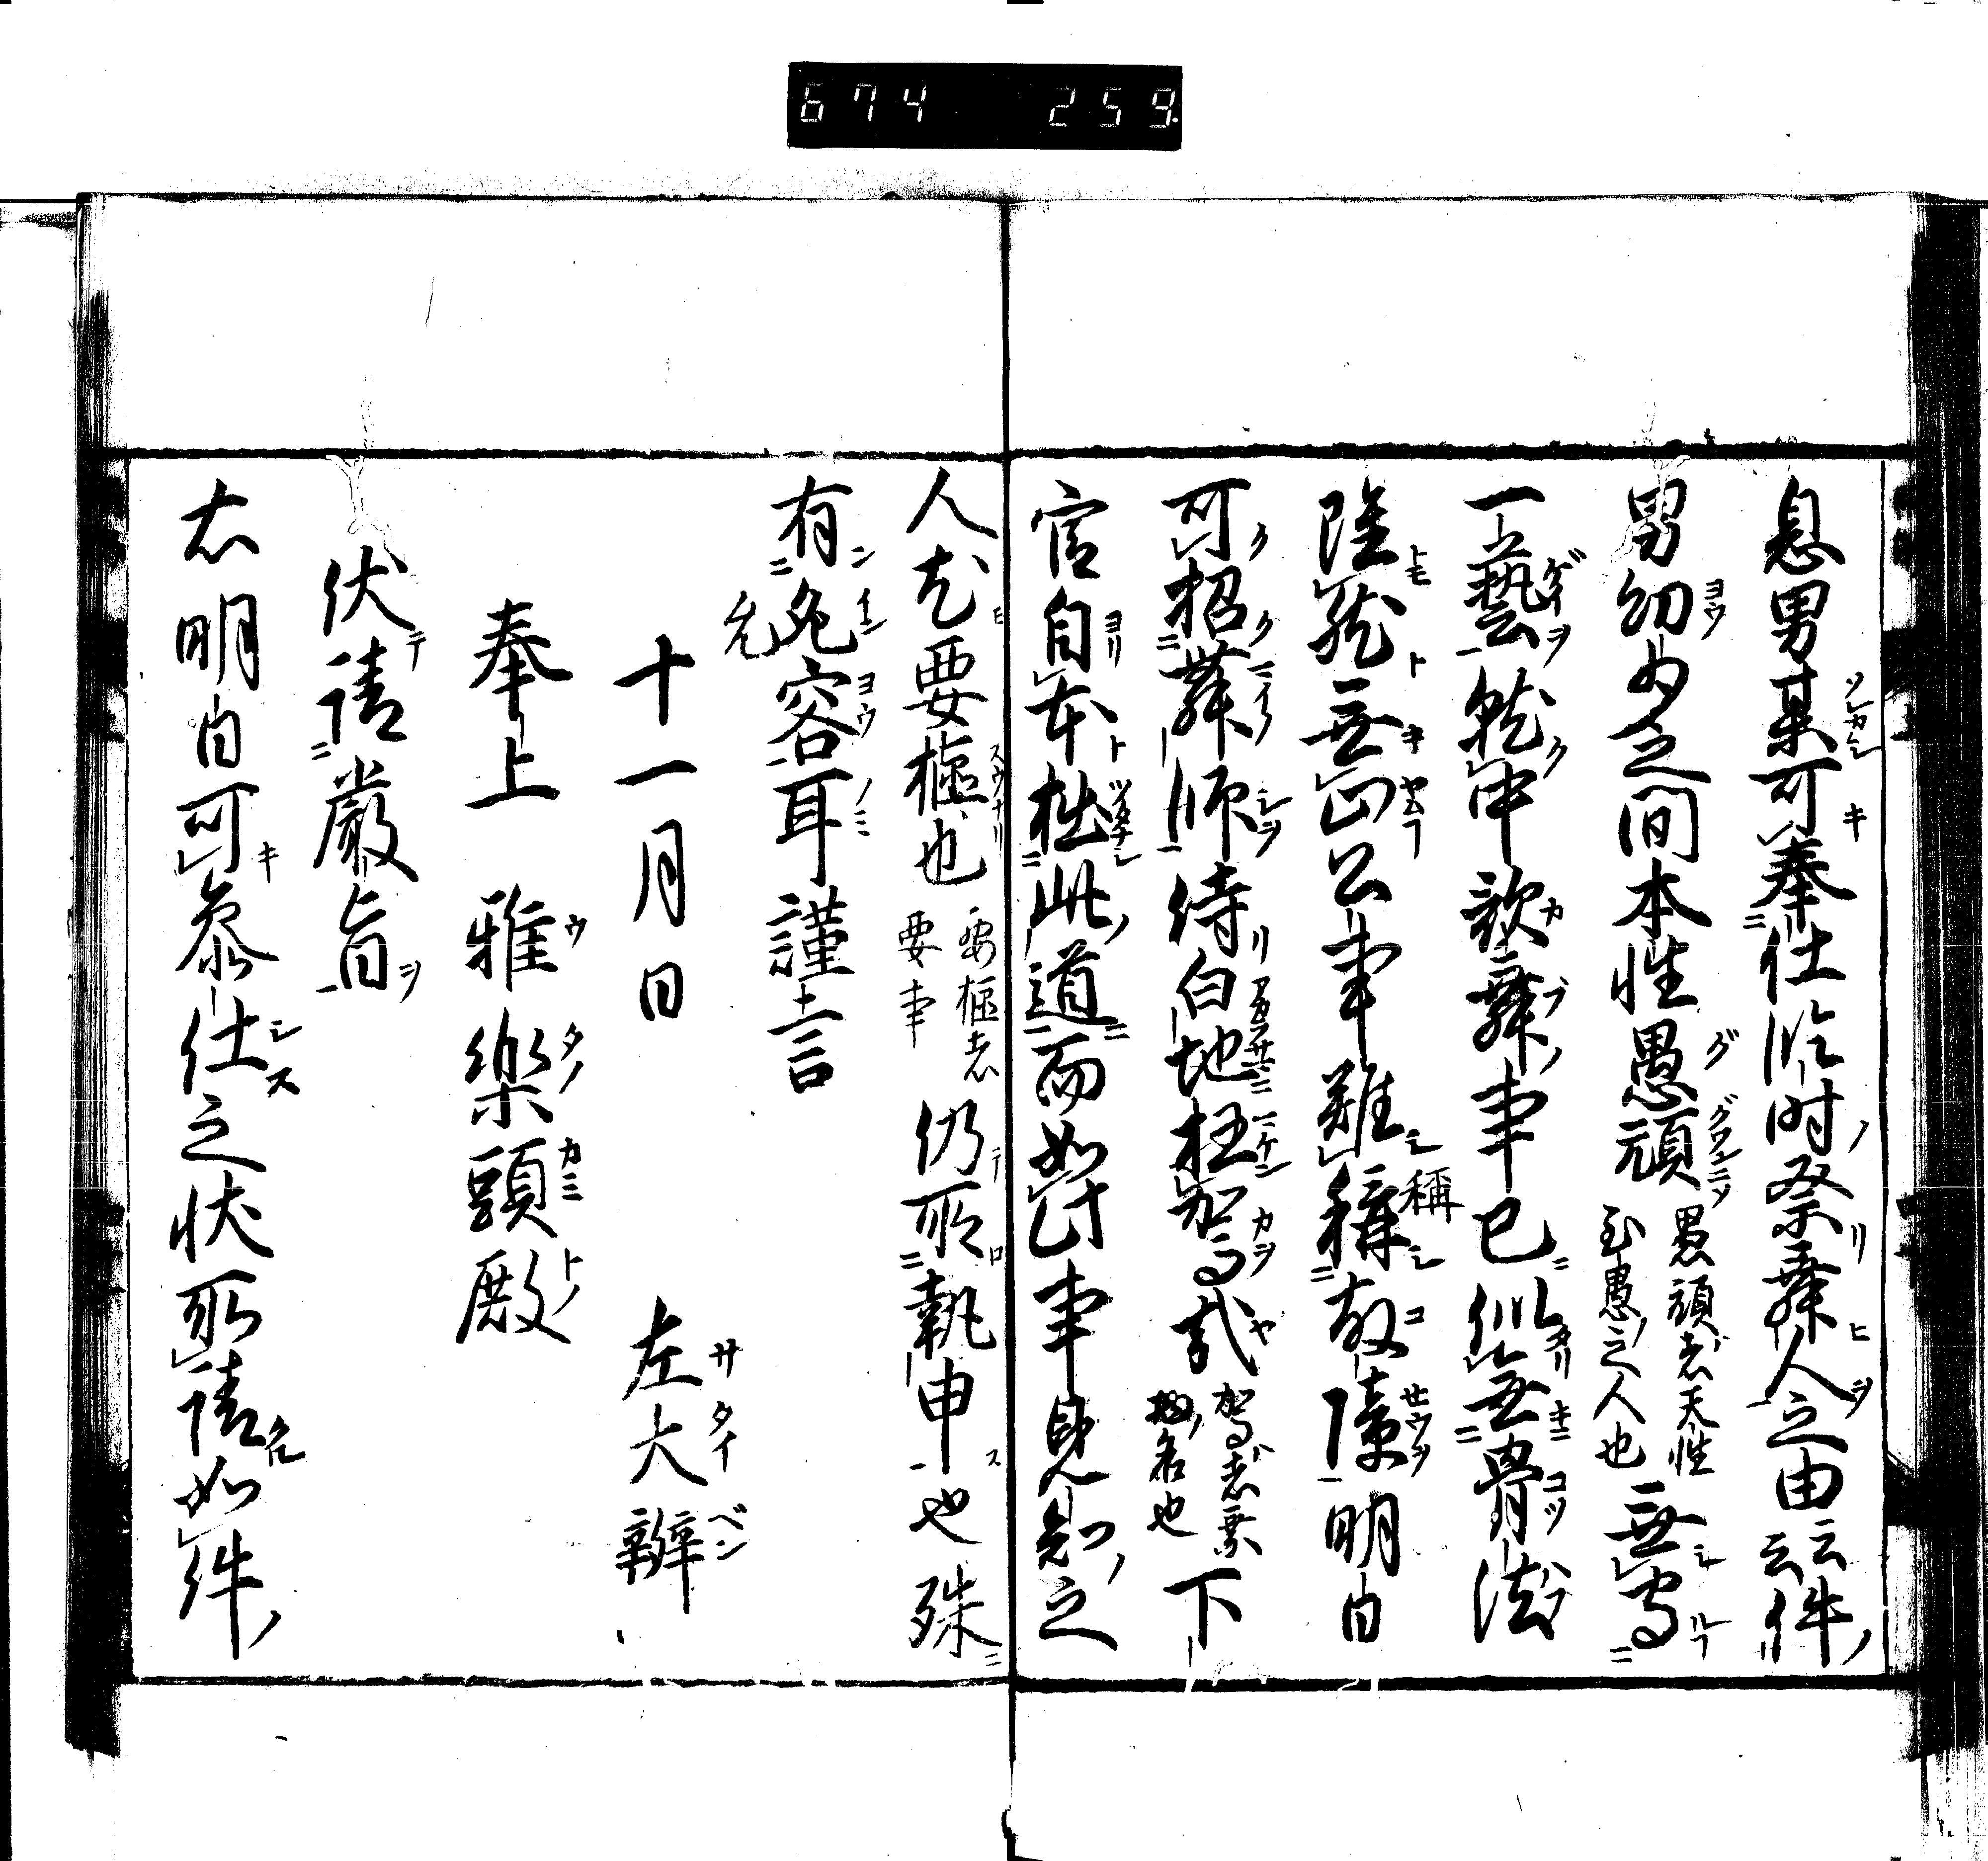 674 259
息男某可奉仕臨時祭舞人之由云云件
男幼少之間本性愚頑愚頑者天性至愚之人也無寫
一藝就中歌舞事已似無骨法
陰然無止公事難稱故障明日
可招舞師侍白地枉駕哉駕者乗物名也下
官自本拙此道而如此事見知之
人尤要樞也要樞者要事仍所執申也殊
有免容耳謹言
允
十一月日 左大辧
奉上 雅樂頭殿
伏請嚴旨
右明日可参仕之状所請如件